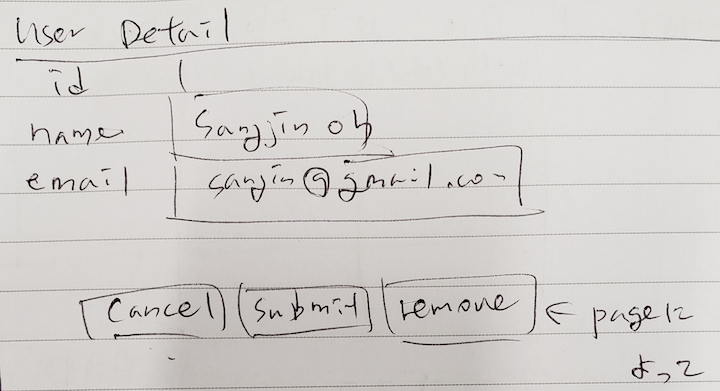 User Detail
id 1
name Sangjin oh
email sanjin@gmail.com
Cancel Submit remove ← pageに
よって